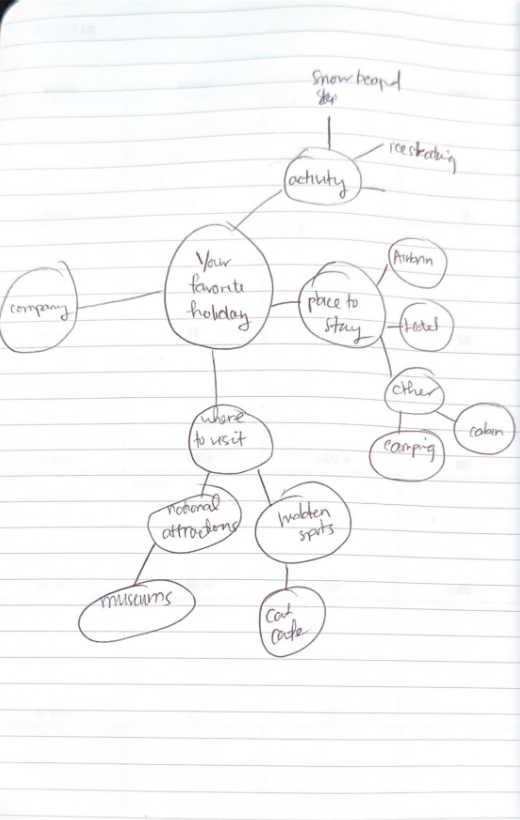 Snowboard
activity
Your
favorite
holiday
company
place to
stay
Airbnn
Hotel
other
cabin
camping
where
to visit
national
attractions
hidden
spots
museums
cat
cafe